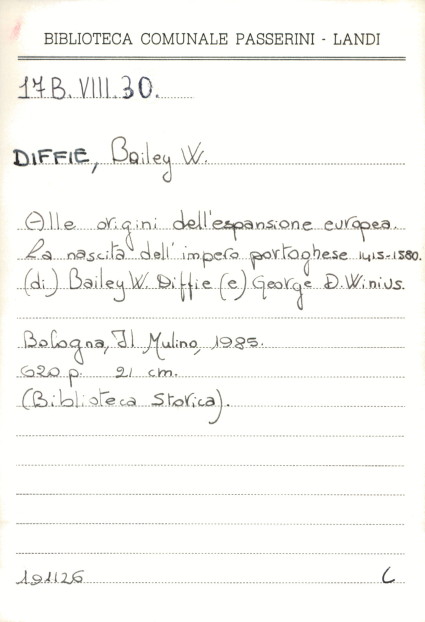 BIBLIOTECA COMUNALE PASSERINI - LANDI
17B.VIII.30.
DIFFIE, Bailey W.
Alle origini dell'espansione europea.
La nascita dell'impero portoghese 1415-1580.
(di) Bailey W. Diffie (e) George D. Winius.
Bologna, Il Mulino, 1985.
620 p. 21 cm.
(Biblioteca Storica).
191126 C